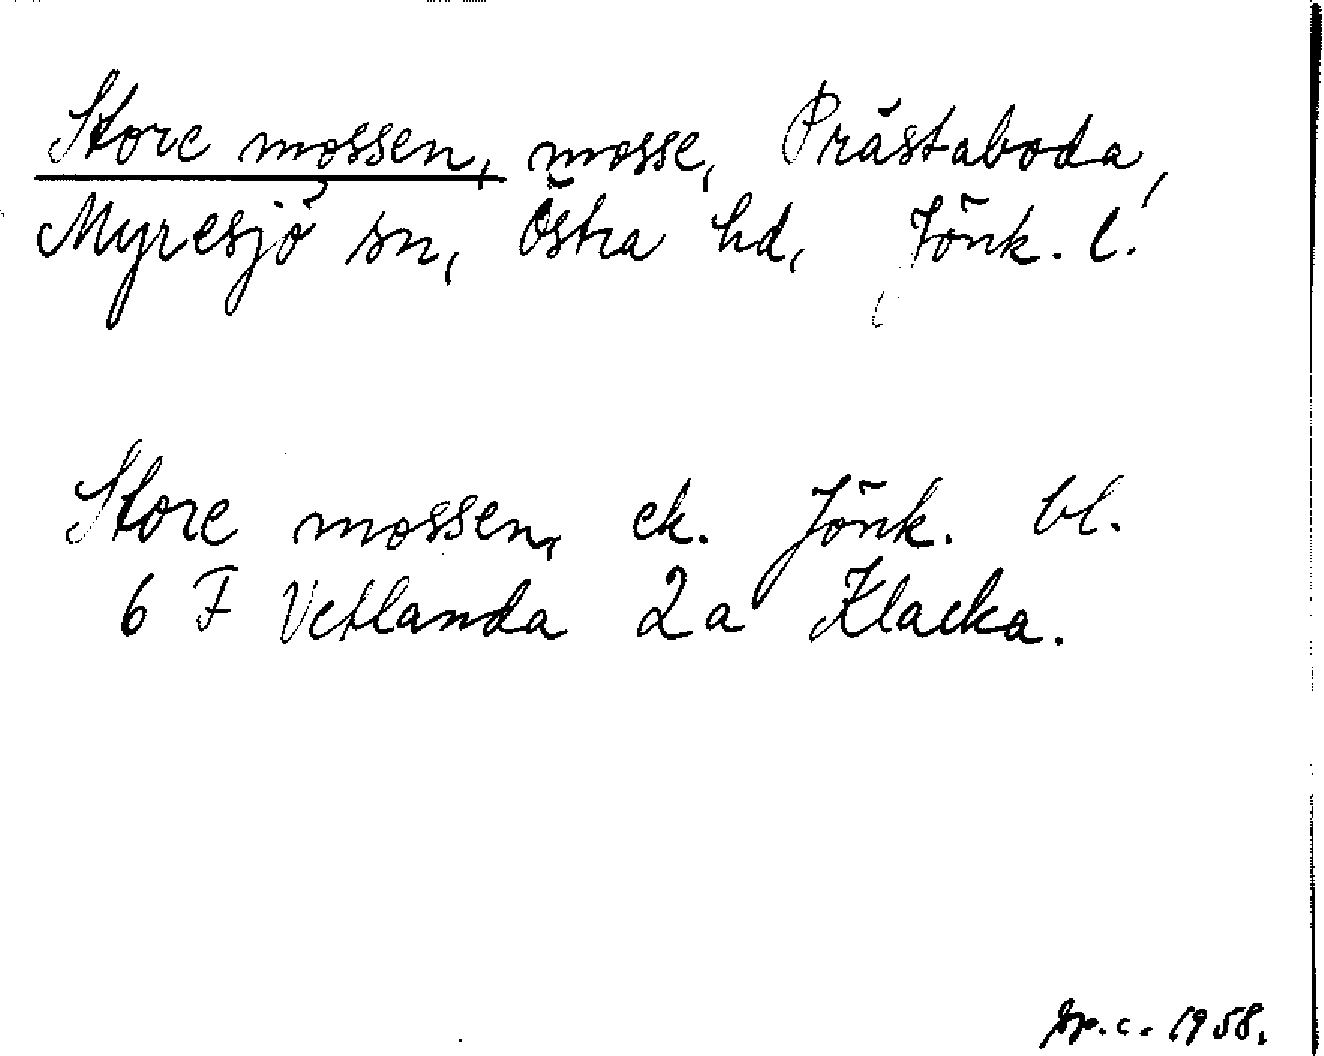 Store mossen, mosse, Prästaboda,
Myresjö sn, Östra hd, Jönk. l.
Store mossen, ek. Jönk. bl.
6 F Vetlanda 2a Klacka.
sp.c. 1958.